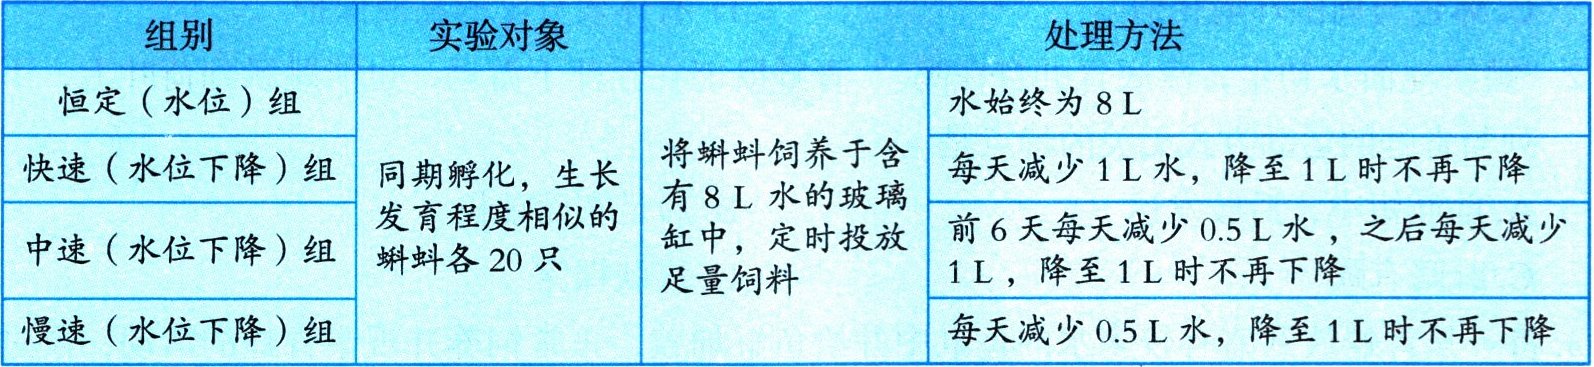 组别
实验对象
处理方法
恒定（水位）组
快速（水位下降）组
中速（水位下降）组
慢速（水位下降）组
同期孵化，生长
发育程度相似的
蝌蚪各 20 只
将蝌蚪饲养于含
有 8 L 水的玻璃
缸中，定时投放
足量饲料
水始终为 8 L
每天减少 1 L 水，降至 1 L 时不再下降
前 6 天每天减少 0.5 L 水，之后每天减少
1 L，降至 1 L 时不再下降
每天减少 0.5 L 水，降至 1 L 时不再下降